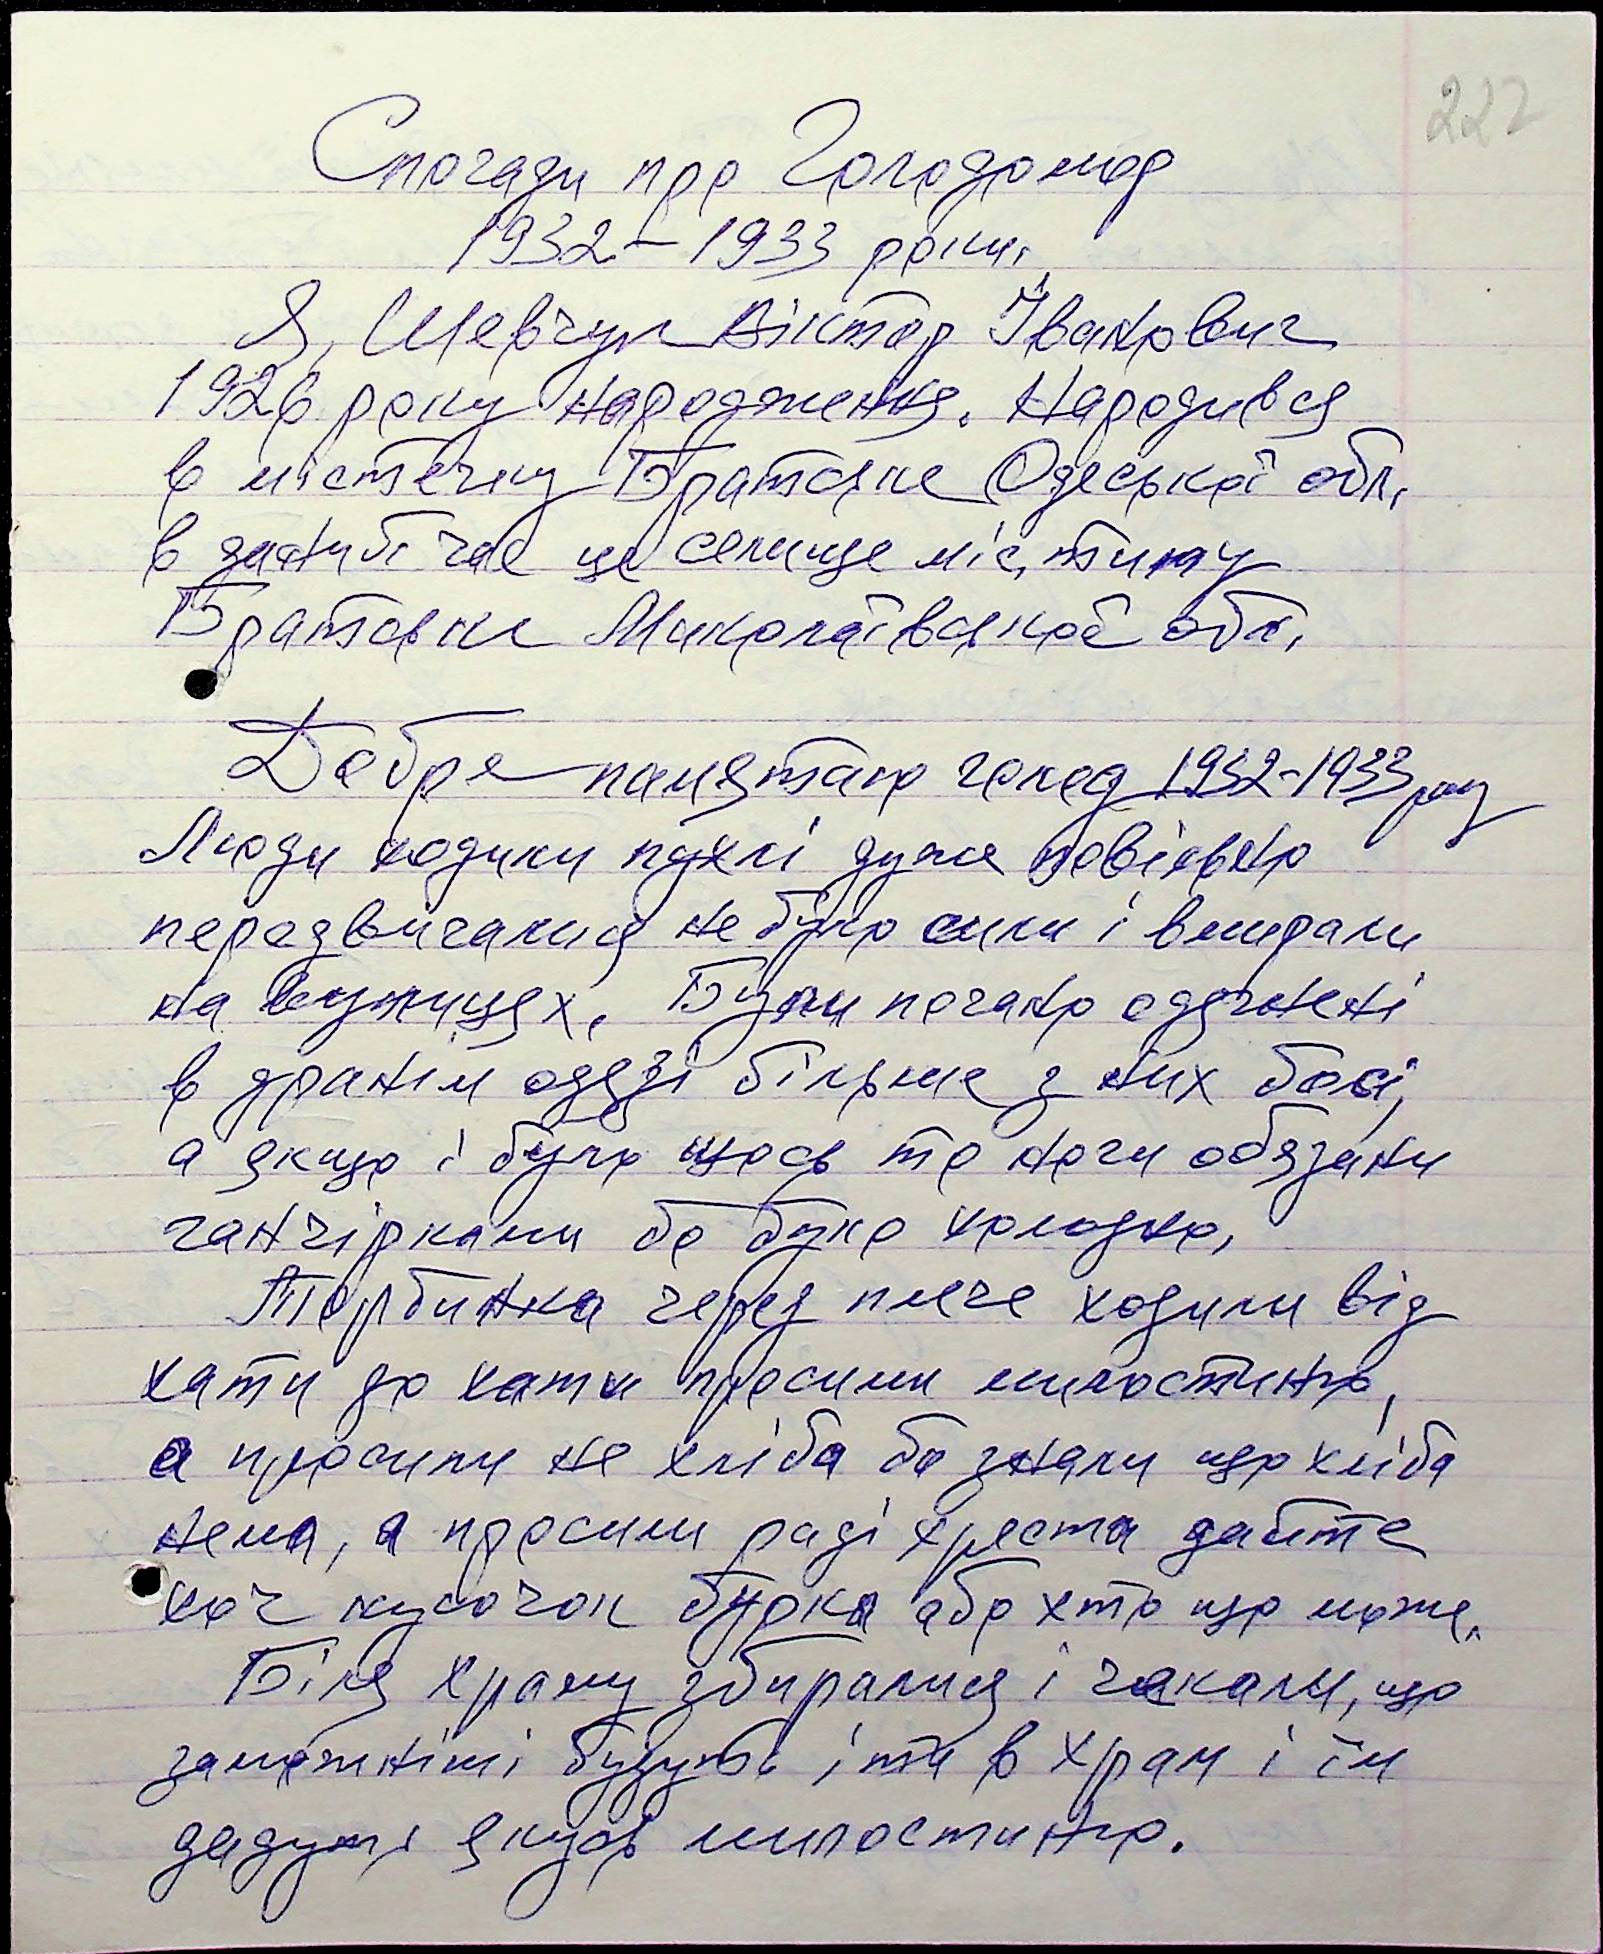 227
Спогади про Голодомор
1932-1933 роки.
Я, Шевчук Віктор Іванович
1926 року народження. Народився
в містечку Братське Одеської обл.
в данний час це селище міс, типу
Братське Миколаївської обл.
Добре памятаю голод 1932-1933 року
Люди ходили пухлі дуже повільно
передвигалися не було сили і вмирали
на вулицях. Були погано одягнені
в дранім одязі більше з них босі,
а якщо і було щось то ноги обвязани
ганчірками бо було холодно,
Торбинка через плече ходили від
хати до хати просили милостиню,
а просили не хліба бо знали що хліба
нема, а просили раді христа дайте
хоч кусочок бурка або хто що може.
Біля храму збиралися і чекали, що
заможніші будуть іти в храм і їм
дадуть якусь милостиню.